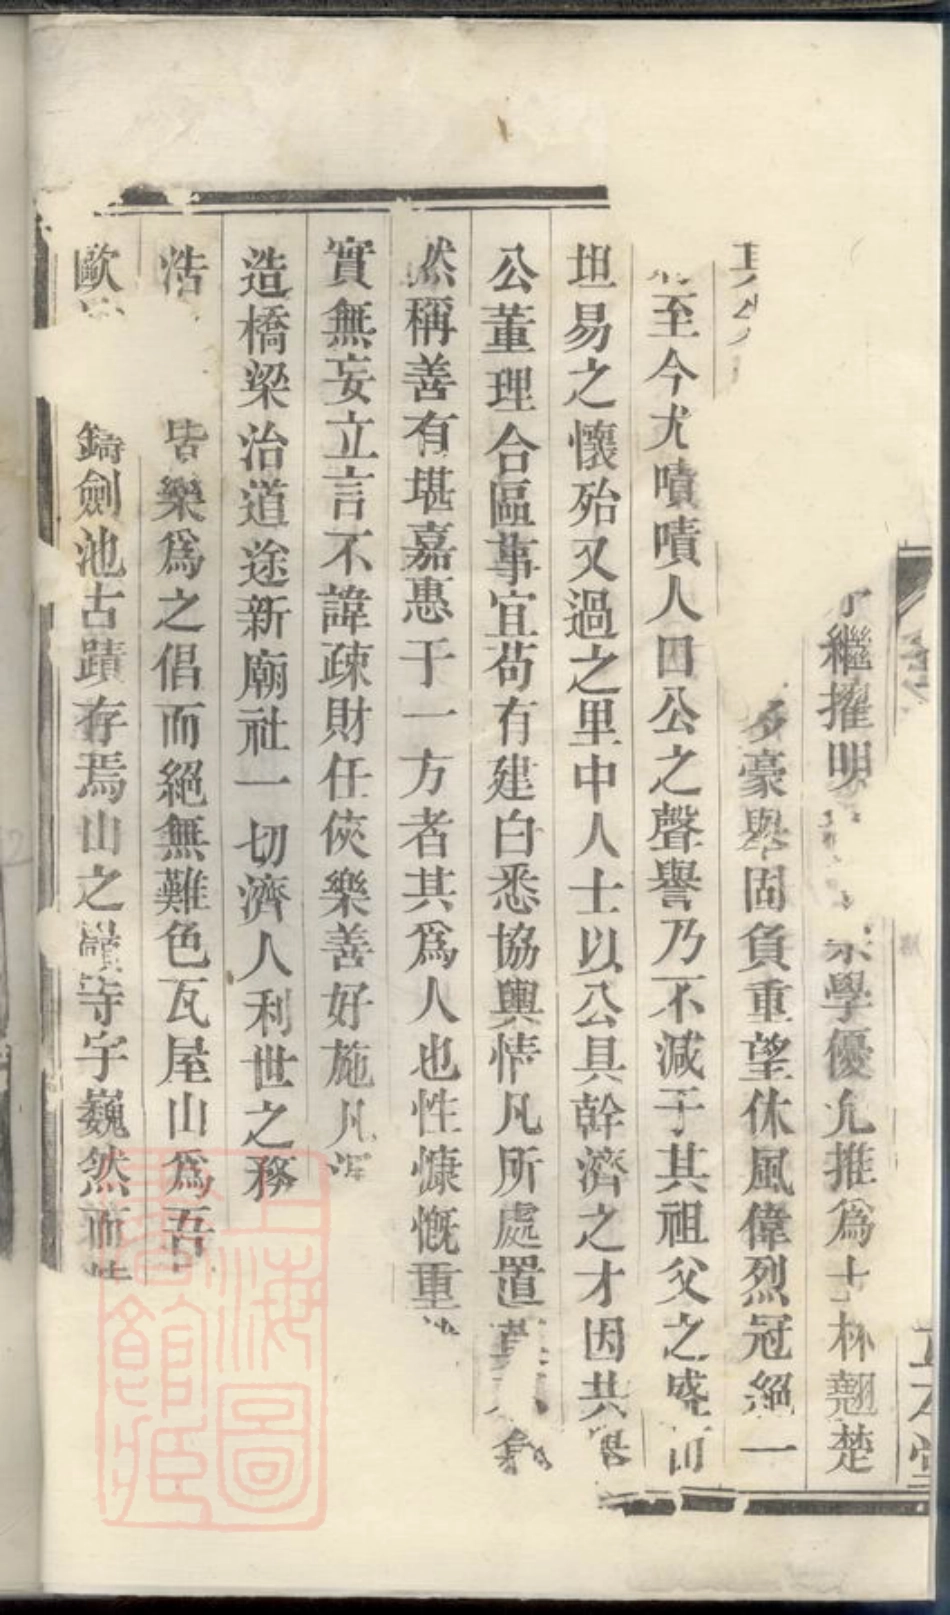 繼擢明學優允推爲士林翹楚
其豪舉固負重望休風偉烈冠絕一
至今尤嘖嘖人口公之聲譽乃不減于其祖父之盛而
坦易之懷殆又過之里中人士以公具幹濟之才因共舉
公董理合區事宜苟有建白悉協輿情凡所處置
然稱善有堪嘉惠于一方者其爲人也性慷慨重
實無妄立言不諱疎財任俠樂善好施凡
造橋梁治道途新廟社一切濟人利世之務
浩皆樂爲之倡而絕無難色瓦屋山爲吾
歐鑄劍池古蹟存焉山之巔寺宇巍然而
上海圖書館藏